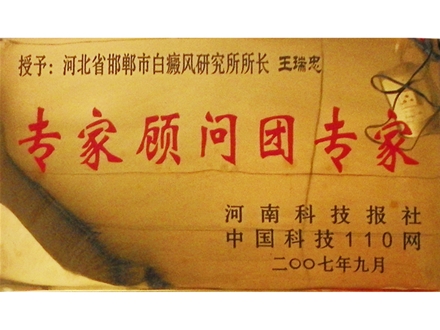 授予：河北省邯郸市白癜风研究所所长 王瑞忠
专家顾问团专家
河南科技报社
中国科技110网
二〇〇七年九月